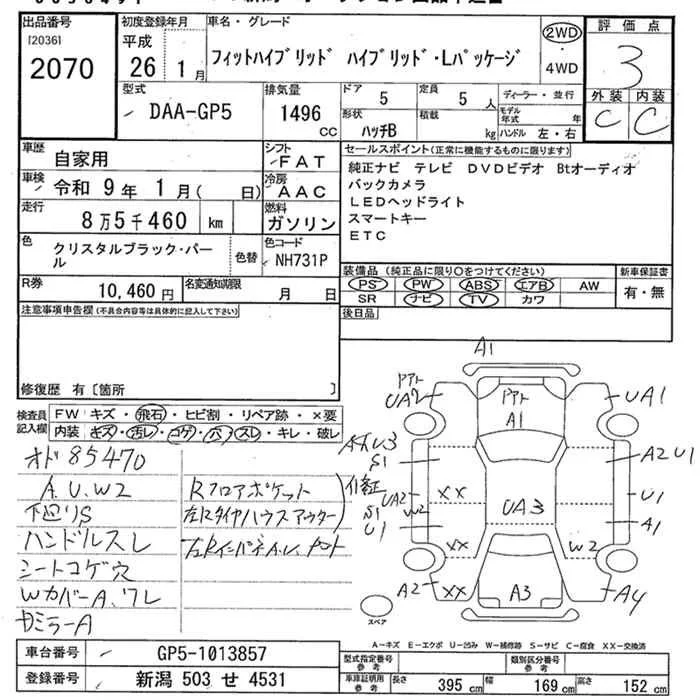 出品番号
[2036]
2070
初度登録年月
平成
26 1月
車名・グレード
フィットハイブリッド ハイブリッド・Lパッケージ
2WD
・
4WD
評価点
3
外装 内装
C C
型式
DAA-GP5
排気量
1496
CC
ドア
5
定員
5 人
ディーラー・並行
形状
ハッチB
積載
kg
モデル年式
年
ハンドル 左・右
車歴
自家用
シフト
FAT
車検
令和 9年 1月( 日)
冷房
AAC
走行
8万5千460 km
燃料
ガソリン
色
クリスタルブラック・パール
色替
色コード
NH731P
R券
10,460円
名変通知期限
月 日
セールスポイント(正常に機能するものに限ります)
純正ナビ テレビ DVDビデオ Btオーディオ
バックカメラ
LEDヘッドライト
スマートキー
ETC
装備品(純正品に限り○をつけてください)
PS PW ABS エアB AW
SR ナビ TV カワ
新車保証書
有・無
後日品
注意事項申告欄(不具合内容等は具体的に記入して下さい)
修復歴 有〔箇所 〕
検査員記入欄
FW キズ・飛石・ヒビ割・リペア跡・×要
内装 キズ・汚レ・コゲ・穴・スレ・キレ・破レ
オド 85470
A.U.W2
下廻りS
ハンドルスレ
シートコゲ穴
Wカバー A、ワレ
Rフロアポケット
左Rタイヤハウスアウター
修正
A1
UA2
A1
UA1
S1
A2 U1
UA2
W2
XX
UA3
U1
S1
U1
A1
XX
W2
A2
XX
A3
A4
スペア
A-キズ E-エクボ U-凹み W-補修跡 S-サビ C-腐食 XX-交換済
車台番号
GP5-1013857
登録番号
新潟 503 せ 4531
型式指定番号
参考
類別区分番号
参考
車庫証明用
参考
長さ 395 cm 幅 169 cm 高さ 152 cm